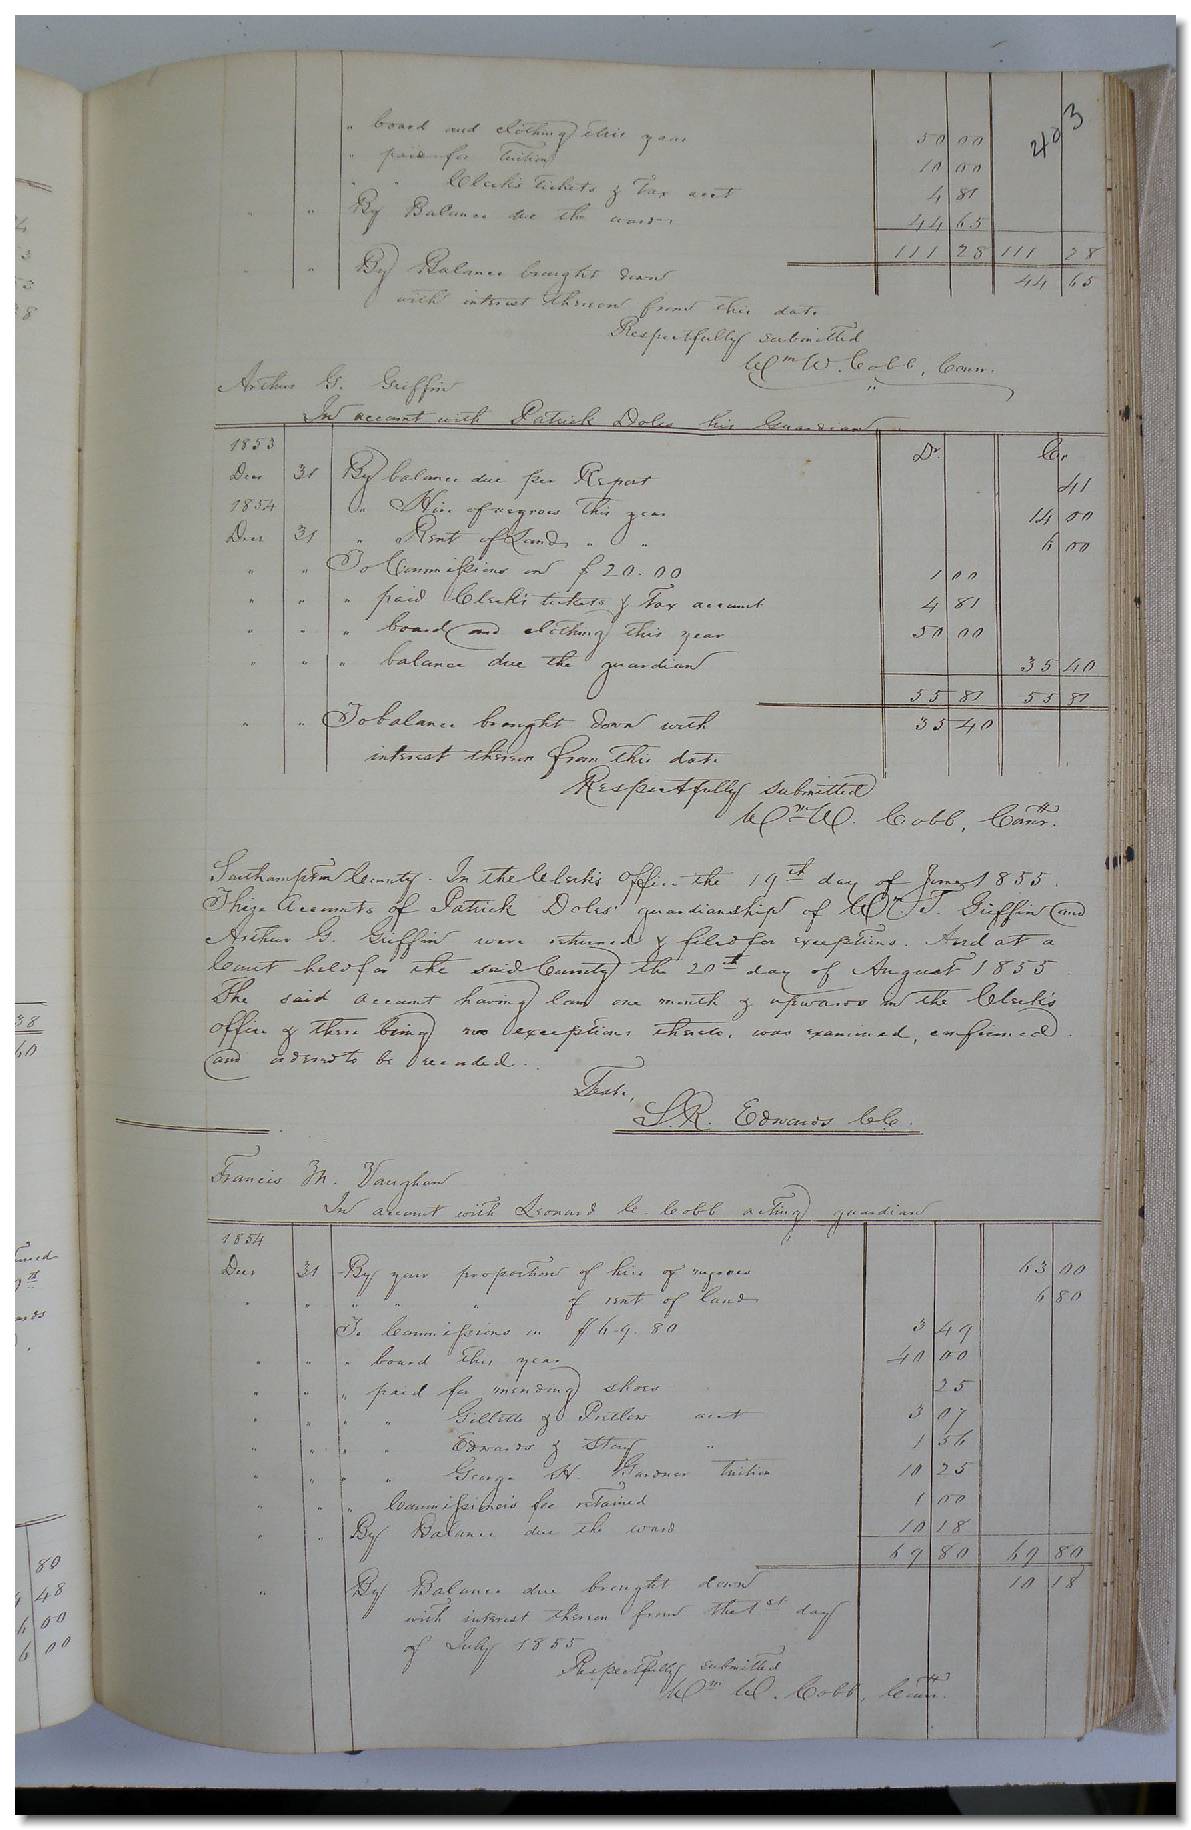 403
" board and clothing this year 50 00
" paid for Tuition 10 00
" " Clerk's tickets & Tax acct 4 81
" " By Balance due the ward 44 65
111 28 111 28
" " By Balance brought down 44 65
with interest thereon from this date
Respectfully submitted
Wm W. Cobb, Comr.
Arthur G. Griffin
In account with Patrick Doles his Guardian
1853 Dr. Cr.
Decr 31 By balance due per Report 41
1854 " Hire of negroes this year 14 00
Decr 31 " Rent of Land " " 6 00
" " To Commissions on $20.00 1 00
" " " paid Clerk's tickets & Tax account 4 81
" " " board and clothing this year 50 00
" " " balance due the guardian 35 40
55 81 55 81
" " To balance brought down with 35 40
interest thereon from this date
Respectfully submitted
Wm W. Cobb, Comr.
Southampton County. In the Clerk's Office the 19th day of June 1855.
These Accounts of Patrick Doles' guardianship of Wm T. Griffin and
Arthur G. Griffin were returned & filed for exceptions. And at a
Court held for the said County the 20th day of August 1855
The said account having lain one month & upwards in the Clerk's
Office & there being no exceptions thereto, was examined, confirmed
and ordered to be recorded.
Test.,
L.R. Edwards C.C.
Francis M. Vaughan
In account with Leonard C. Cobb acting guardian
1854
Decr 31 By your proportion of hire of negroes 63 00
" " " " " of rent of land 6 80
To Commissions on $69.80 3 49
" " " board this year 40 00
" " " paid for mending shoes 25
" " " " Gillette & Pretlow acct 3 07
" " " " Edwards & Story " 1 56
" " " " George H. Gardner Tuition 10 25
" " " Commissioner's fee retained 1 00
" " By Balance due the ward 10 18
69 80 69 80
" By Balance due brought down 10 18
with interest thereon from the 1st day
of July 1855
Respectfully submitted
Wm W. Cobb, Comr.